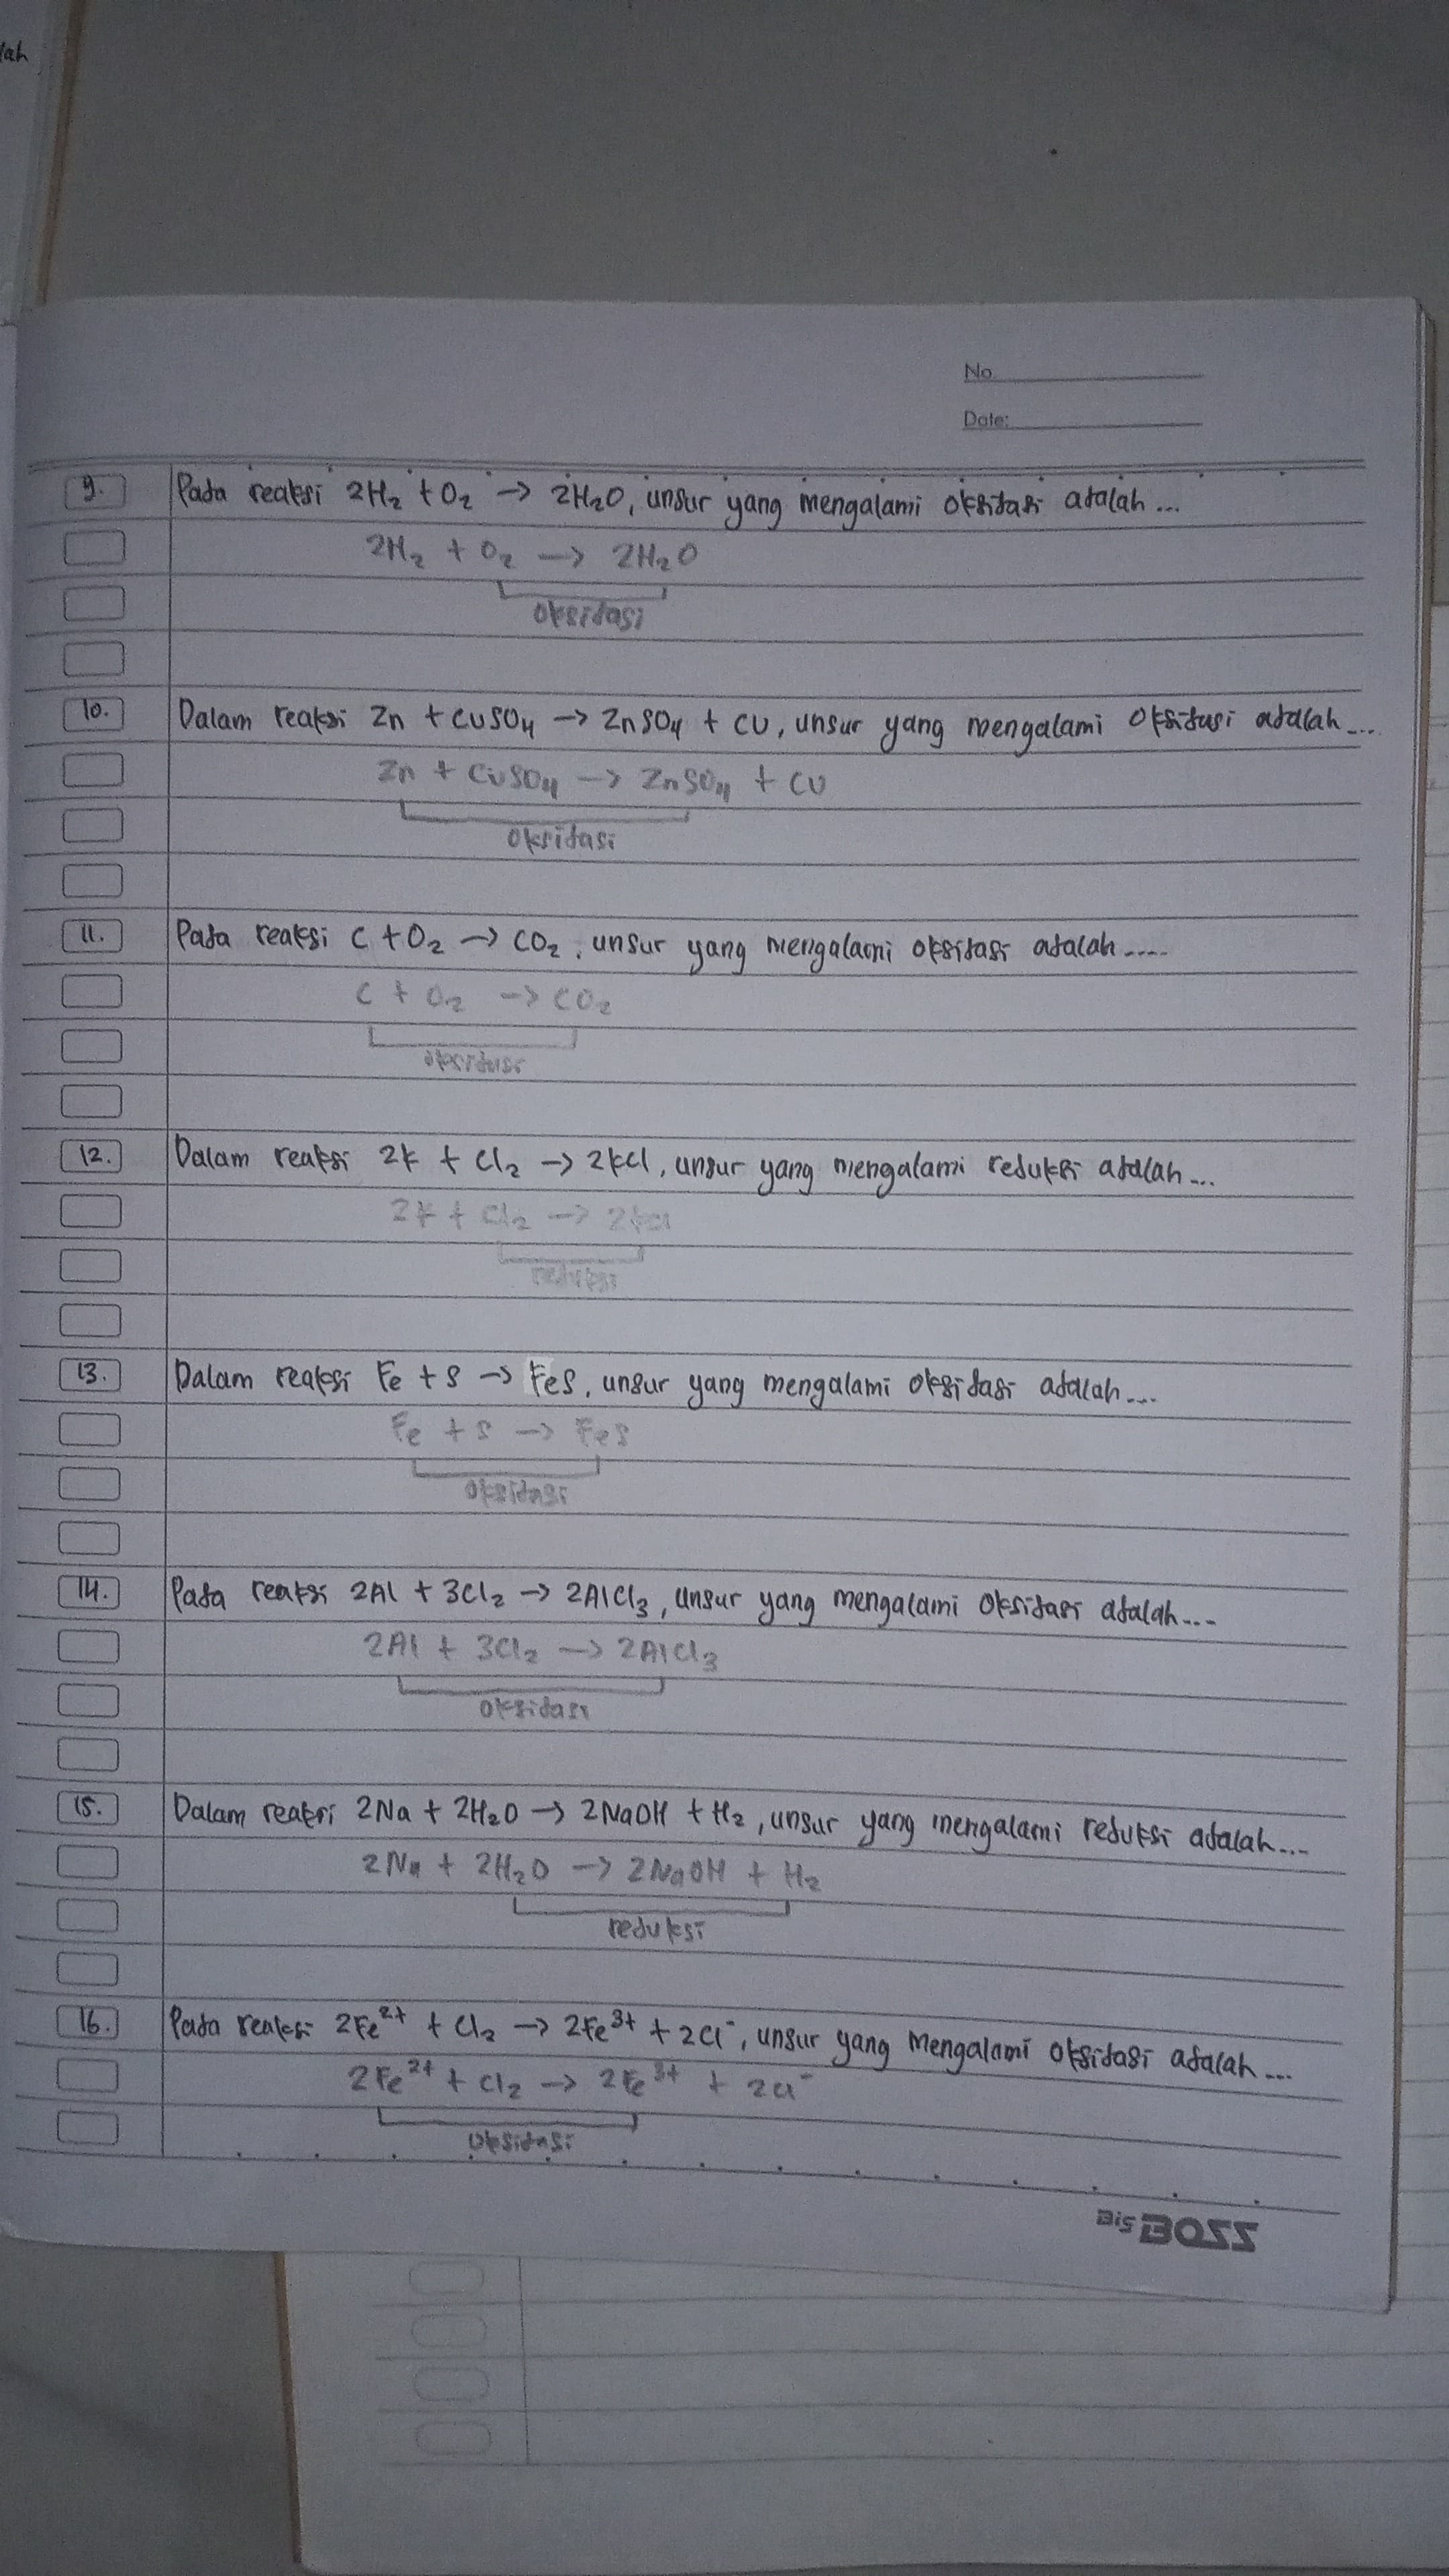 lah
No.
Date:
9. Pada reaksi 2H₂ + O₂ → 2H₂O, unsur yang mengalami oksidasi adalah...
2H₂ + O₂ → 2H₂O
oksidasi
10. Dalam reaksi Zn + CUSO₄ → ZnSO₄ + CU, unsur yang mengalami oksidasi adalah...
Zn + CUSO₄ → ZnSO₄ + CU
oksidasi
11. Pada reaksi C + O₂ → CO₂, unsur yang mengalami oksidasi adalah....
C + O₂ → CO₂
oksidasi
12. Dalam reaksi 2K + Cl₂ → 2KCl, unsur yang mengalami reduksi adalah...
2K + Cl₂ → 2KCl
reduksi
13. Dalam reaksi Fe + S → FeS, unsur yang mengalami oksidasi adalah...
Fe + S → FeS
oksidasi
14. Pada reaksi 2Al + 3Cl₂ → 2AlCl₃, unsur yang mengalami oksidasi adalah...
2Al + 3Cl₂ → 2AlCl₃
oksidasi
15. Dalam reaksi 2Na + 2H₂O → 2NaOH + H₂, unsur yang mengalami reduksi adalah...
2Na + 2H₂O → 2NaOH + H₂
reduksi
16. Pada reaksi 2Fe²⁺ + Cl₂ → 2Fe³⁺ + 2Cl⁻, unsur yang mengalami oksidasi adalah...
2Fe²⁺ + Cl₂ → 2Fe³⁺ + 2Cl⁻
oksidasi
Big BOSS